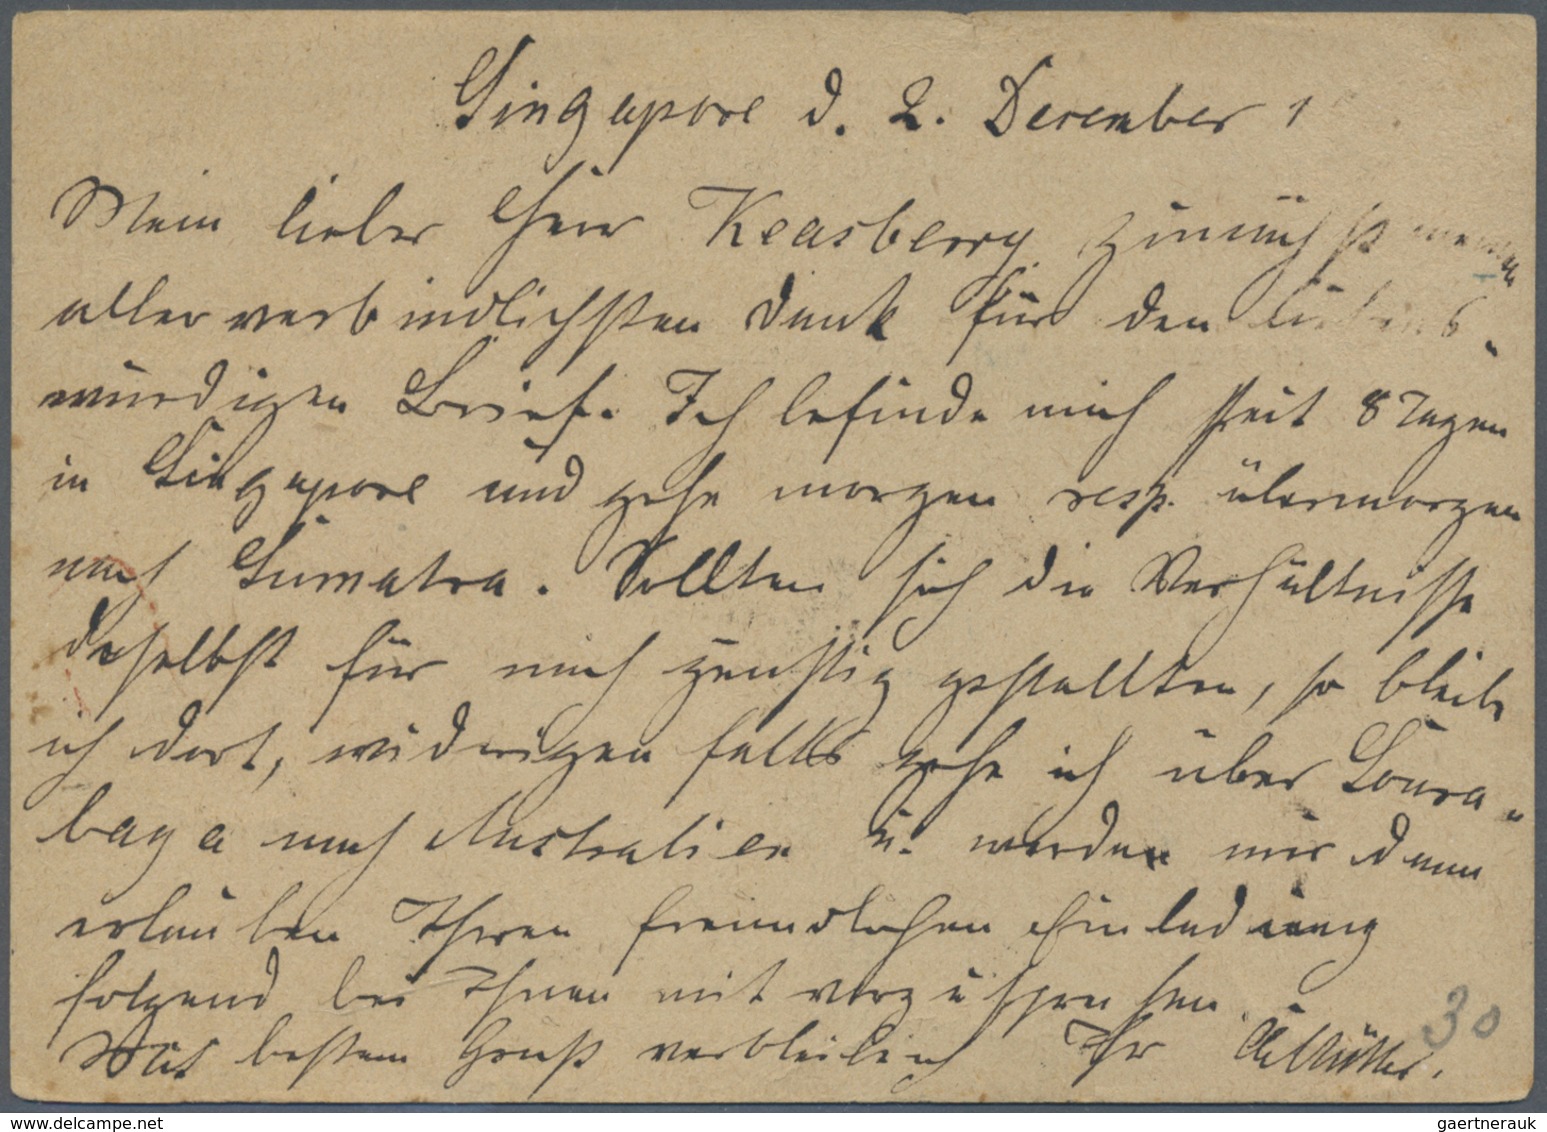 Singapore d. 2. December 1
Mein lieber Herr Keasberry zunächst meinen
allerverbindlichsten Dank für den liebens-
würdigen Brief. Ich befinde mich seit 8 Tagen
in Singapore und gehe morgen resp. übermorgen
nach Sumatra. Sollten sich die Verhältnisse
daselbst für mich günstig gestallten, so bleibe
ich dort, widrigen falls gehe ich über Soura-
baya nach Australien u. werde mir dann
erlauben Ihrer freundlichen Einladung
folgend bei Ihnen mit vorzusprechen.
Mit bestem Gruß verbleibe ich Ihr
30
www.delcampe.net
gaertnerauk